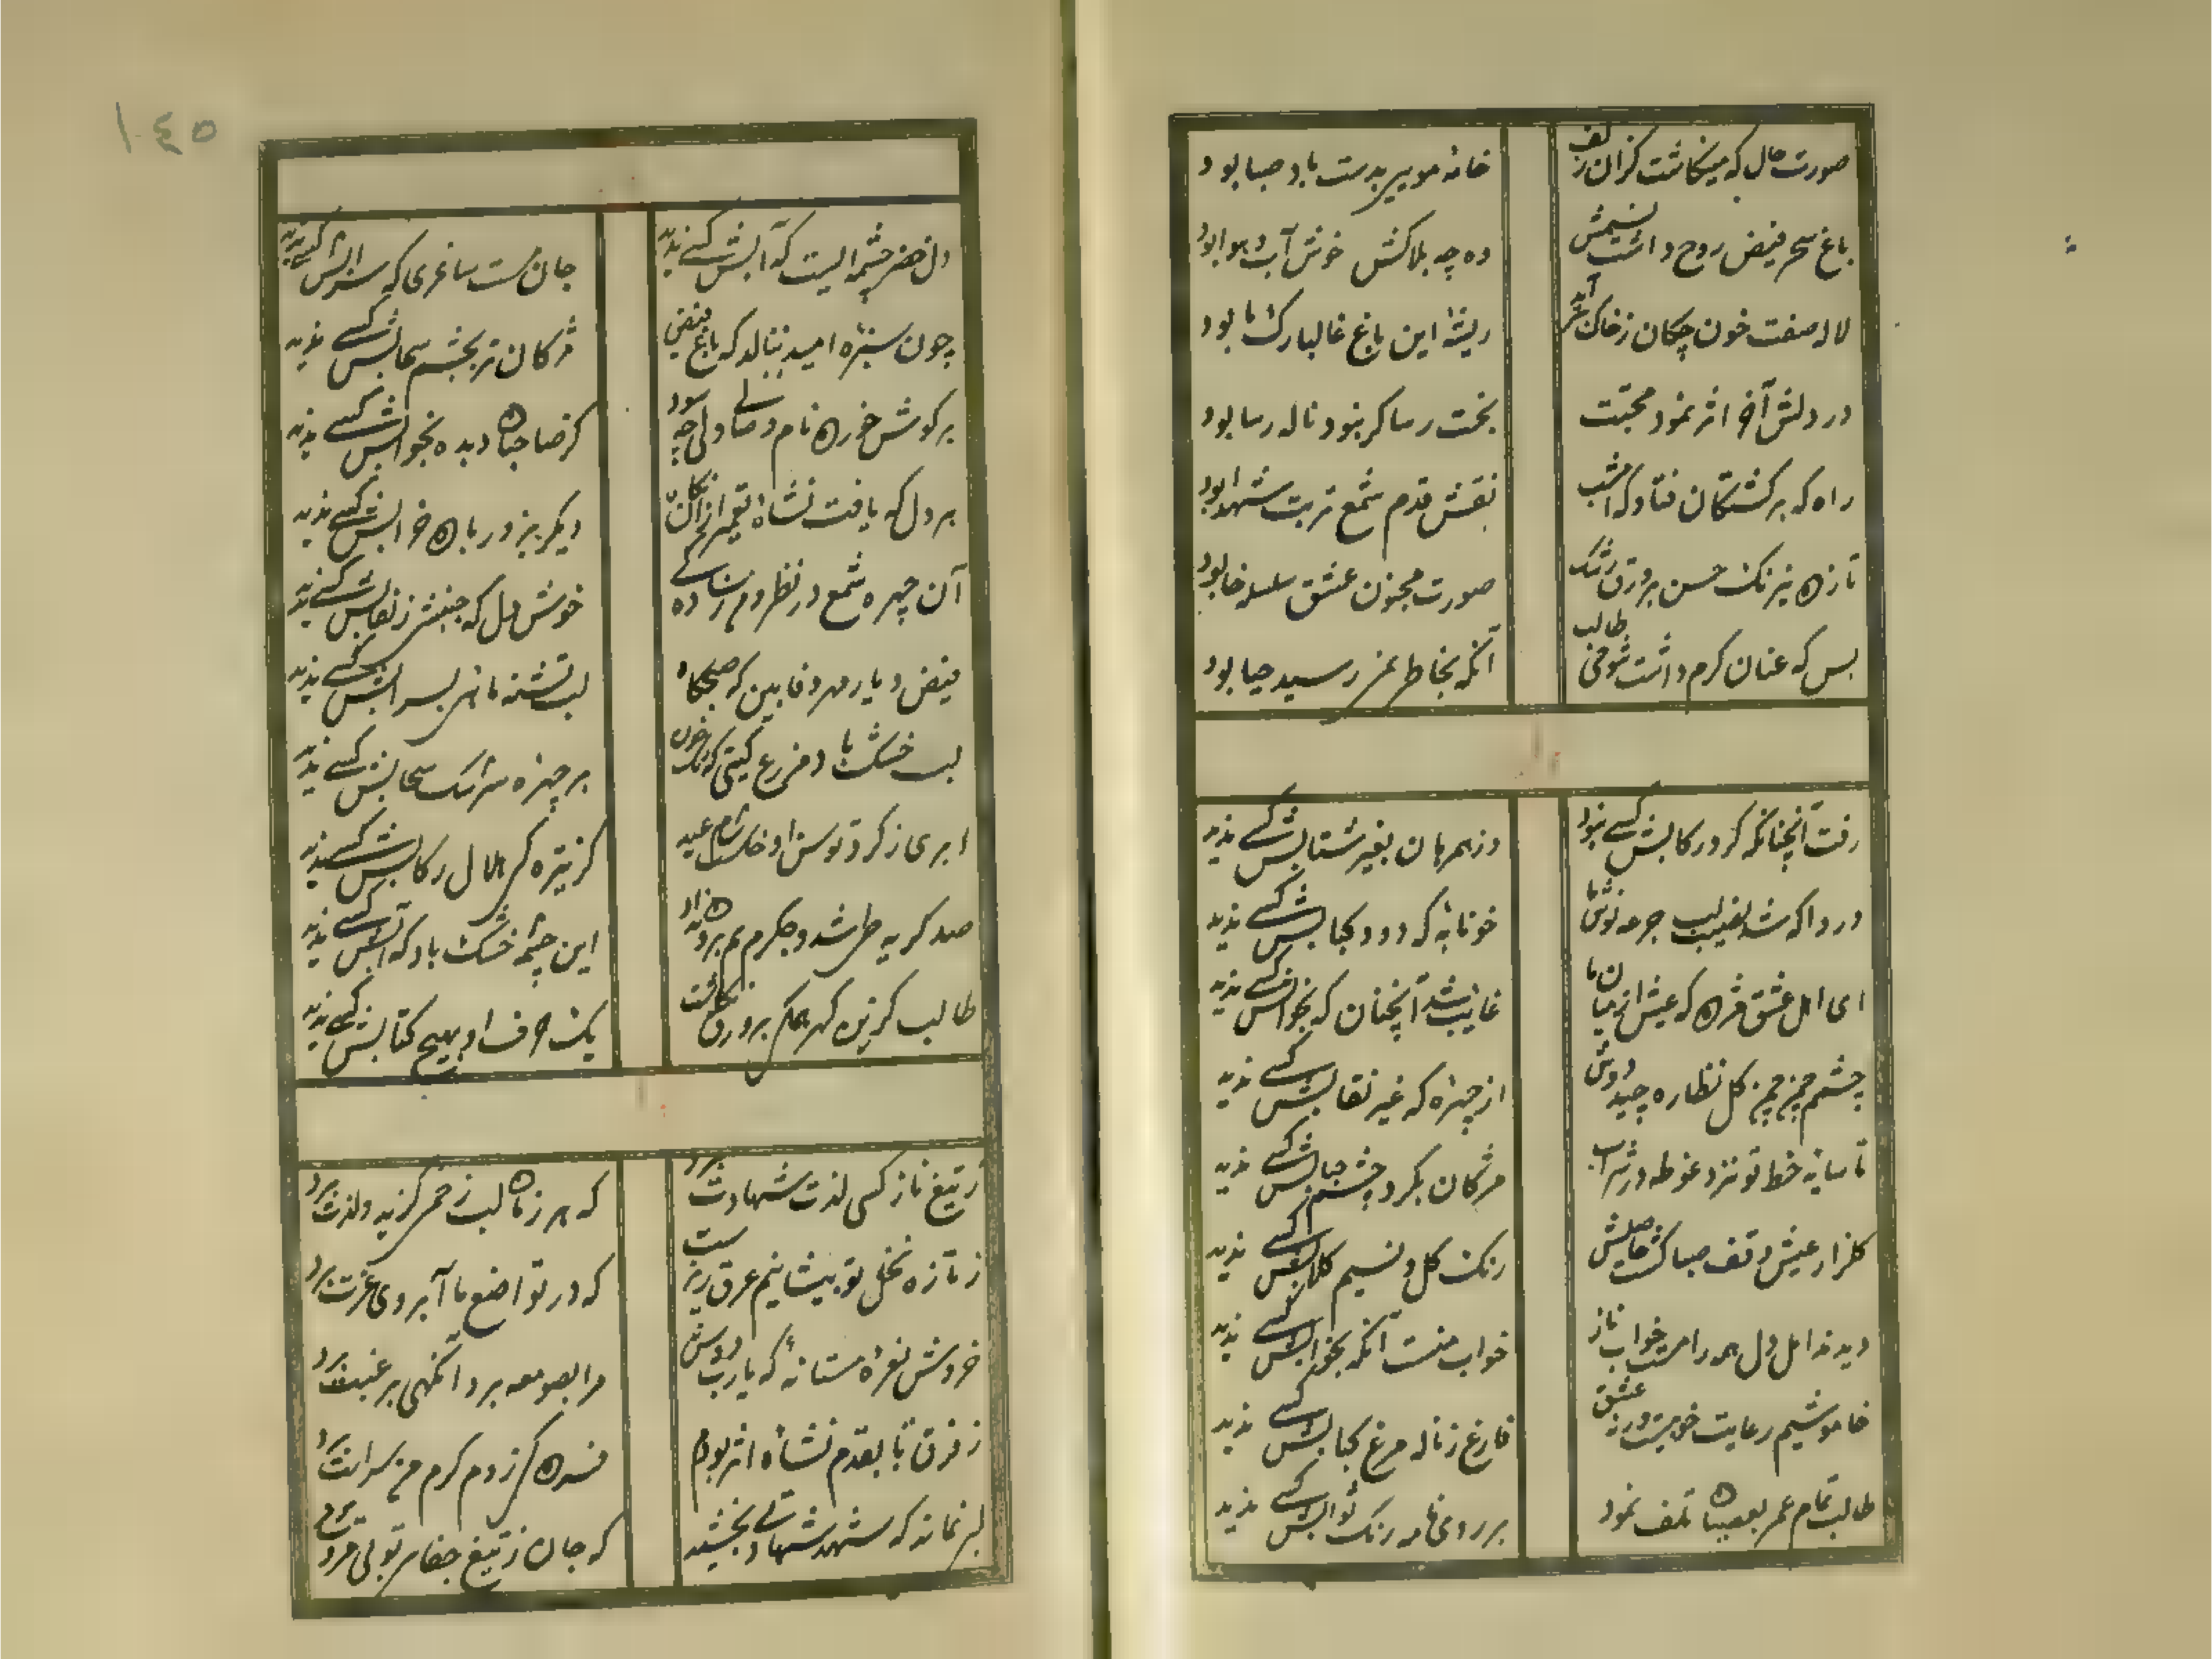 صورت حال که مینکاشت کزان زلف
خانه مو بیر بدست باد صبا بود
باغ سحر فیض روح داشت نسیمش
ده چه بلاکش خوش آب و هوا بود
لاله صفت خون چکان ز خاک
ریشه این باغ غالبا رک ما بود
در دلش آخر اثر نمود محبت
بخت رسا کر نبود ناله رسا بود
راه که بر کشتکان فتاد که امشب
نقش قدم شمع تربت شهدا بود
تازه نیرنک حسن بر ورق رنک
صورت مجنون عشق سلسله خا بود
بس که عنان کرم داشت شوخی طالب
آنکه بخاطر نمیرسید حیا بود
رفت آنچنانکه کرد رکابش کسی ندید
وز همرهان بغیر شتابش کسی ندید
دردا که شد نصیب لب جرعه نوش ما
خونابه که دود کبابش کسی ندید
ای اهل عشق مژده که عیش از میان ما
غایب شد آنچنان که بخوابش کسی ندید
چشم چمن چمن کل نظاره چید دوش
از چهره که غیر نقابش کسی ندید
تا سایه خط تو نزد غوطه در شراب
مژکان بکرد چشم حبابش کسی ندید
کلزار عیش وقف صبا کشت حاصلش
رنک کل و نسیم کلابش کسی ندید
دیدند اهل دل همه را مست خواب ناز
خواب منست آنکه بخوابش کسی ندید
خاموشیم رعایت خوبیت ورنه عشق
فارغ ز ناله مرغ کبابش کسی ندید
طالب تمام عمر بعصیان تلف نمود
بر روی نامه رنک ثوابش کسی ندید
١٤٥
دل خضر چشمه ایست که آبش کسی ندید
جان مست ساغری که شرابش کسی ندید
چون سبزه امید ننالد که باغ فیض
مژکان تر بچشم سحابش کسی ندید
هر کوش خورده نام وصالی ولی چه سود
کز صاحبان دیده بخوابش کسی ندید
هر دل که یافت نشاه تعمیر از آن نکاه
دیکر بزور باده خرابش کسی ندید
آن چهره شمع در نظر مردم زمانه ده
خوش دل که جنبش ز نقابش کسی ندید
فیض دیار مهر و وفا بین که صبحکاه
لب تشنه مانهی بسرابش کسی ندید
لب خشک ماند مزرع کیتی که رنک خون
بر چهره سرشک سحابش کسی ندید
ابری ز کرد توسن او خاست شام عید
کز تیره کی هلال رکابش کسی ندید
صد کریه طی شد و جکرم نم برون نداد
این چشمه خشک باد که آبش کسی ندید
طالب کزین کهر همکی بر ورق نکاشت
یک حرف او بهیچ کتابش کسی ندید
ز تیغ ناز کسی لذت شهادت برد
که هر زمان لب زخمی کزید و لذت برد
ز تازه نخل تو پیشانیم عرق ریز ست
که در تواضع ما آبروی عزت برد
خروش نعره مستانه که یارب دوش
مرا بصومعه برد آنکهی برغبت برد
ز فرق تا بقدم نشاه اثر بودم
فسرده کی ز دم کرم من سرایت برد
که جان ز تیغ جفا سر تو بی مروت برد